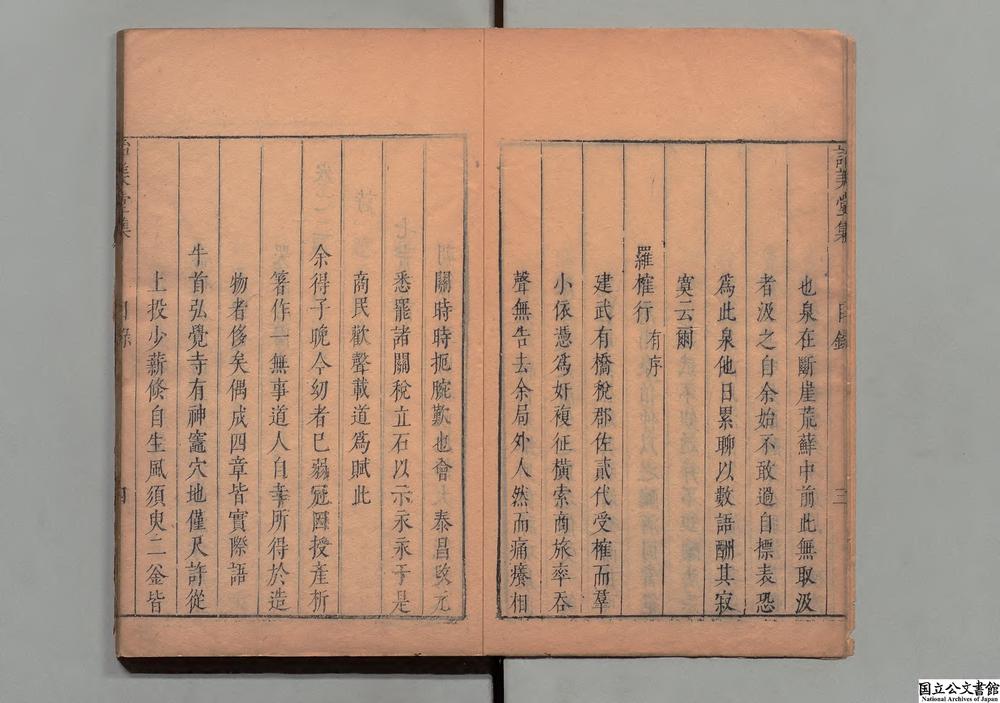 美堂集
目錄
三
也泉在斷崖荒蘚中前此無取汲
者汲之自余始不敢過自標表恐
爲此泉他日累聊以數語酬其寂
寞云爾
羅榷行有序
建武有橋稅郡佐貳代受榷而羣
小依憑爲奸複征橫索商旅率吞
聲無告去余局外人然而痛癢相
關時時扼腕歎也會 泰昌改元
悉罷諸關稅立石以示永永于是
商民歡聲載道爲賦此
余得子晚今幼者已弱冠因授產析
箸作一無事道人自幸所得於造
物者侈矣偶成四章皆實際語
牛首弘覺寺有神竈穴地僅尺許從
上投少薪倏自生風須臾二釜皆
美堂集
目錄
四
国立公文書館
National Archives of Japan